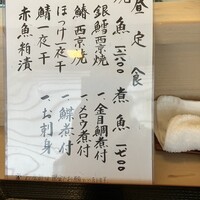 昼定食
煮魚 一七〇〇
一、金目鯛煮付
一、メロウ煮付
一、鰈煮付
一、お刺身
焼魚 一六〇〇
銀鱈西京焼
鰆西京焼
ほっけ一夜干
鯖一夜干
赤魚粕漬